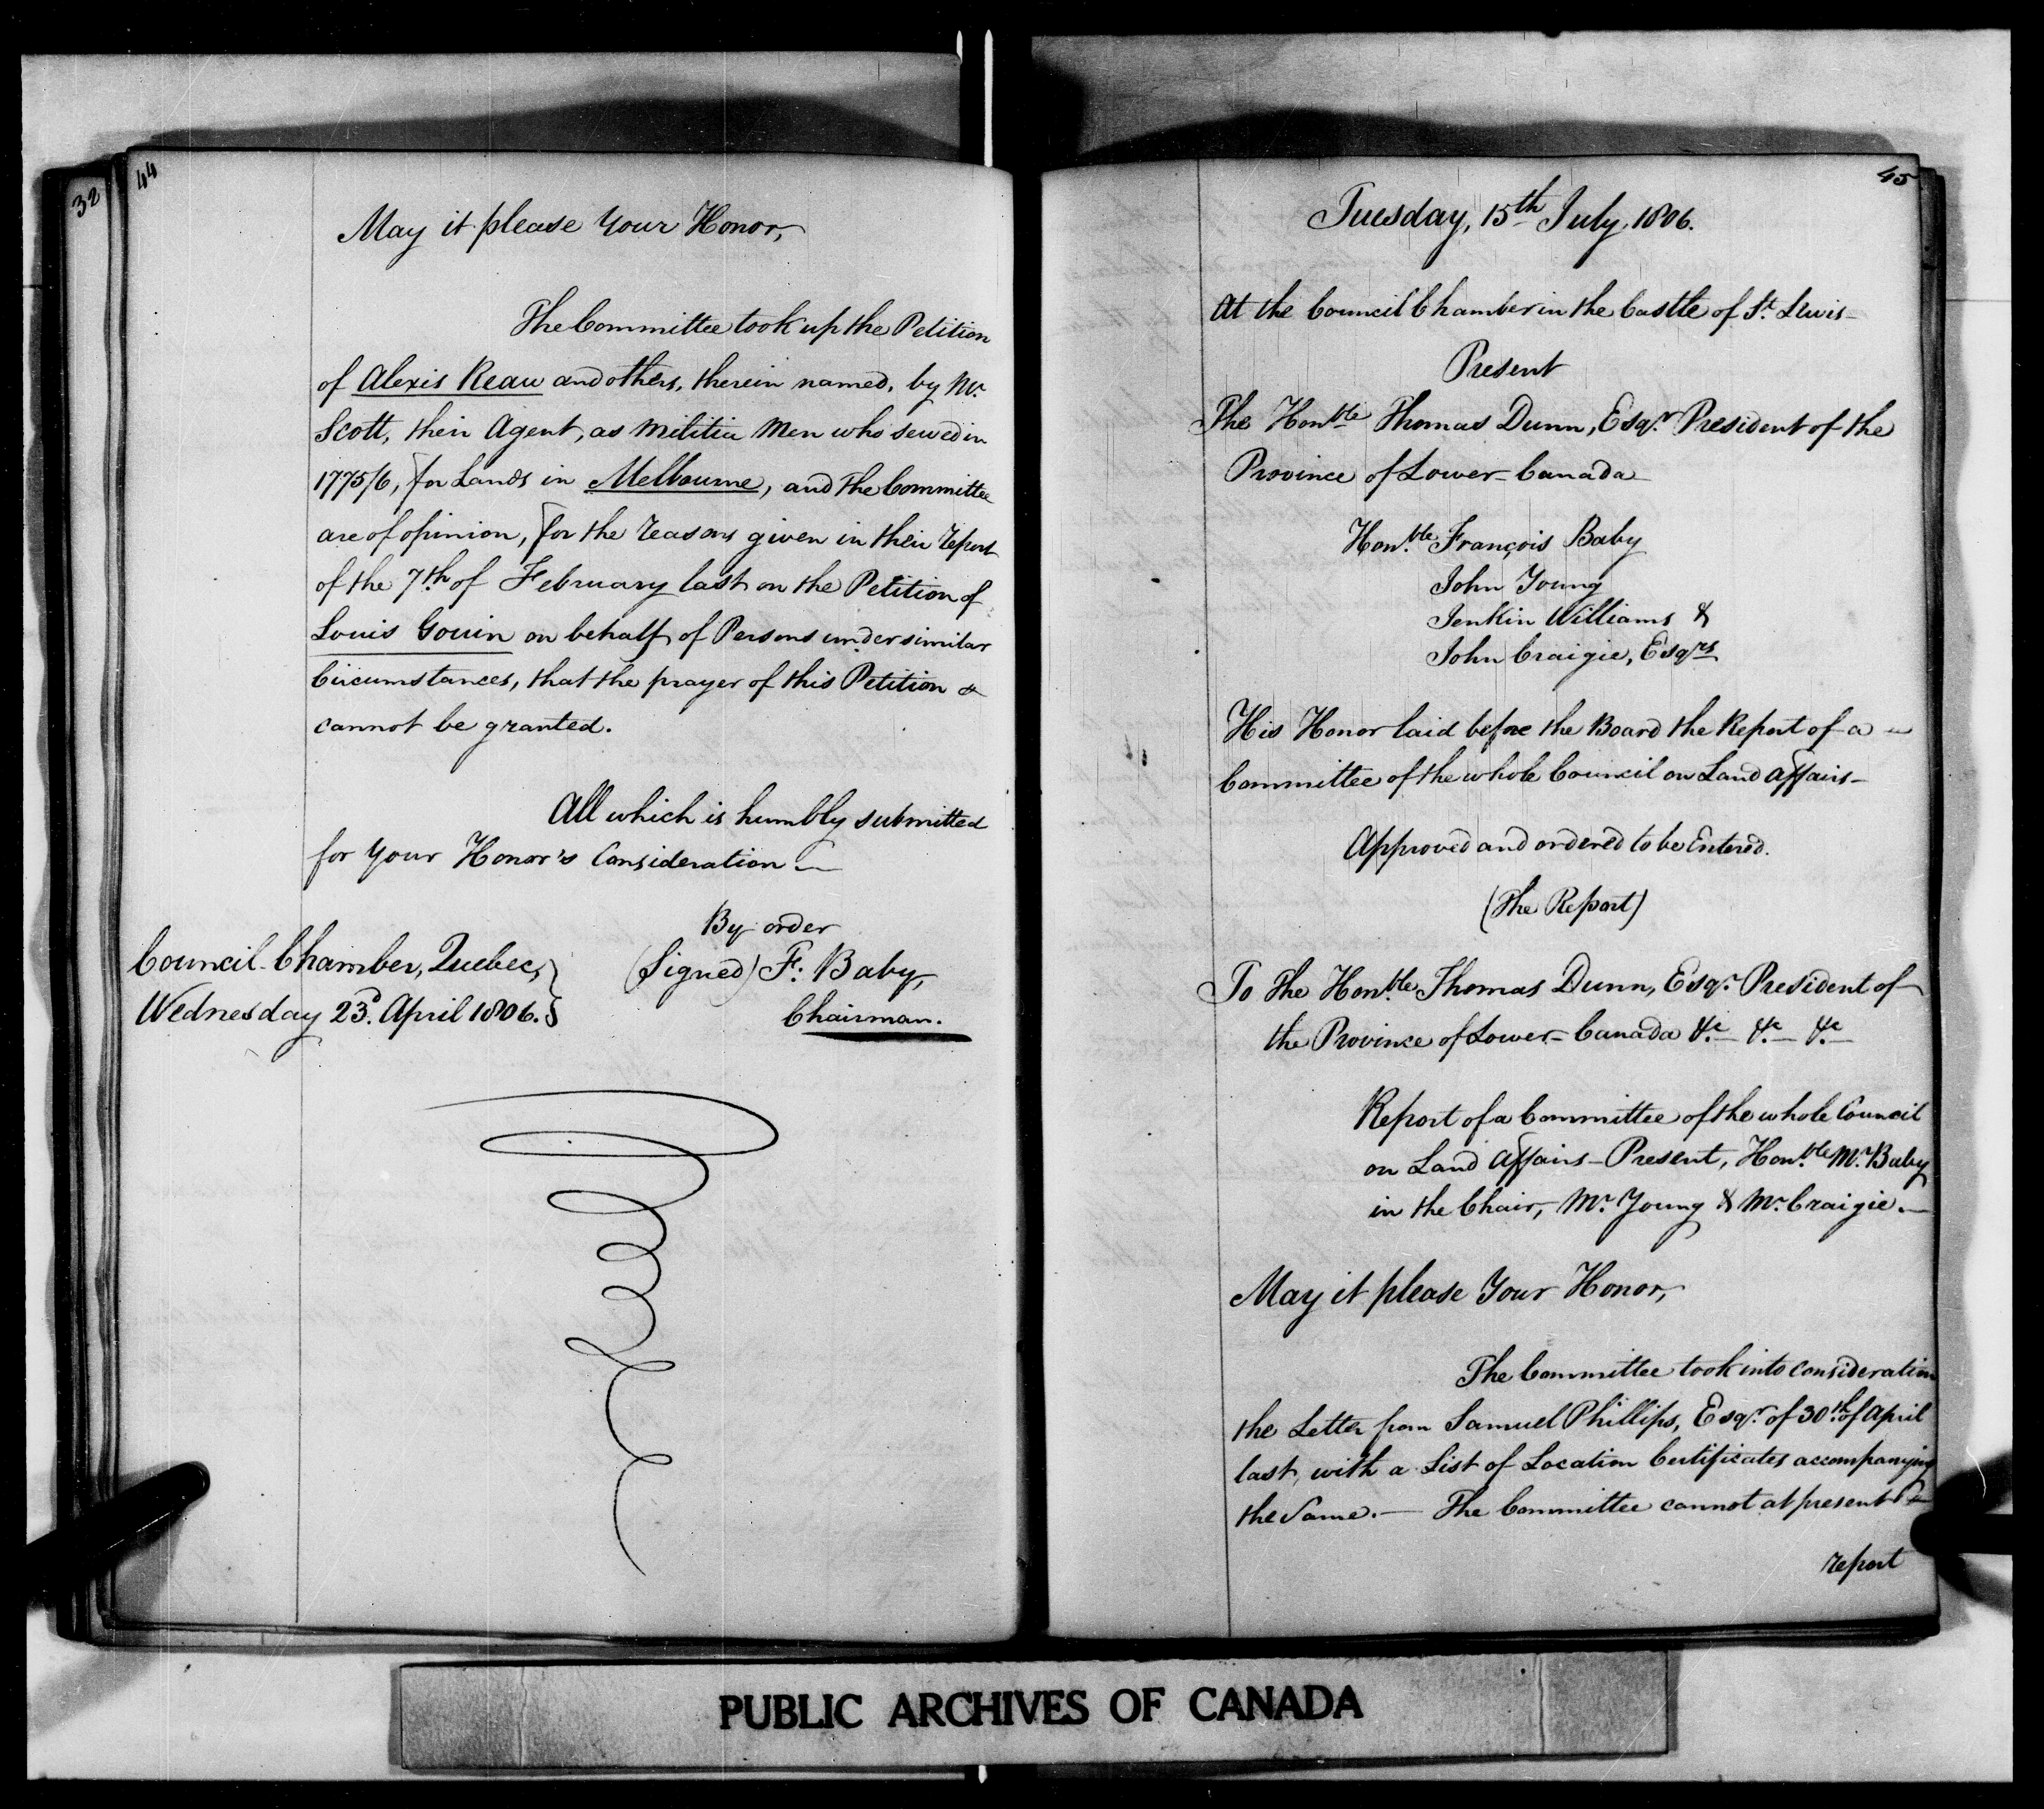 32
44
May it please Your Honor,
The Committee took up the Petition
of Alexis Reau and others, therein named, by Mr.
Scott, their Agent, as Militia Men who served in
1775/6, for Lands in Melbourne, and the Committee
are of opinion, for the reasons given in their report
of the 7th of February last on the Petition of
Louis Gouin on behalf of Persons under similar
Circumstances, that the prayer of this Petition
cannot be granted.
All which is humbly submitted
for Your Honor's Consideration —
By order
(Signed) F: Baby,
Chairman.
Council-Chamber, Quebec,
Wednesday 23d. April 1806.
45
Tuesday, 15th July, 1806.
At the Council Chamber in the Castle of St. Lewis –
Present
The Honble Thomas Dunn, Esqr. President of the
Province of Lower-Canada
Honble François Baby
John Young
Jenkin Williams &
John Craigie, Esqrs
His Honor laid before the Board the Report of a
Committee of the whole Council on Land affairs –
Approved and ordered to be Entered.
(The Report)
To The Honble Thomas Dunn, Esqr. President of
the Province of Lower-Canada &c &c &c
Report of a Committee of the whole Council
on Land affairs – Present, Honble Mr. Baby
in the Chair, Mr. Young & Mr. Craigie. —
May it please Your Honor,
The Committee took into consideration
the Letter from Samuel Phillips, Esqr. of 30th of April
last, with a List of Location Certificates accompanying
the Same. — The Committee cannot at present
report
PUBLIC ARCHIVES OF CANADA